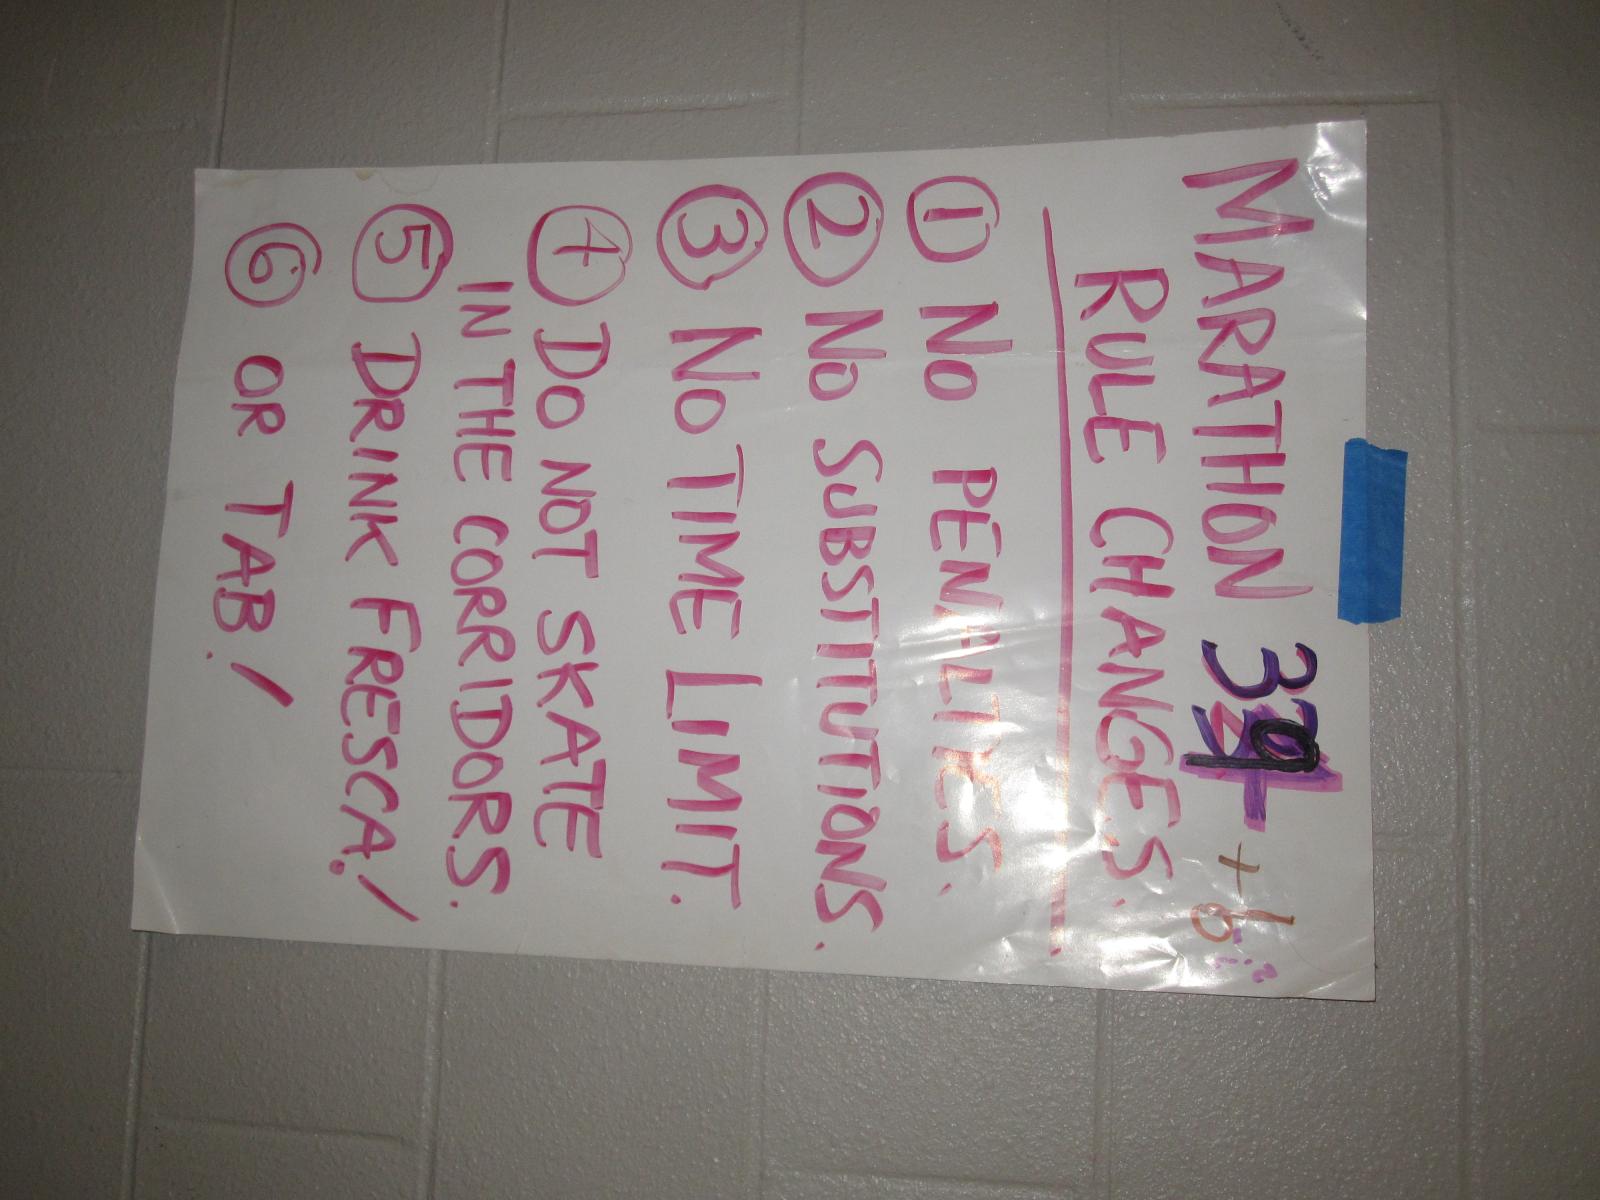 MARATHON 39 + 6
RULE CHANGES.
① NO PENALTIES.
② NO SUBSTITUTIONS.
③ NO TIME LIMIT.
④ DO NOT SKATE
IN THE CORRIDORS.
⑤ DRINK FRESCA!
⑥ OR TAB!